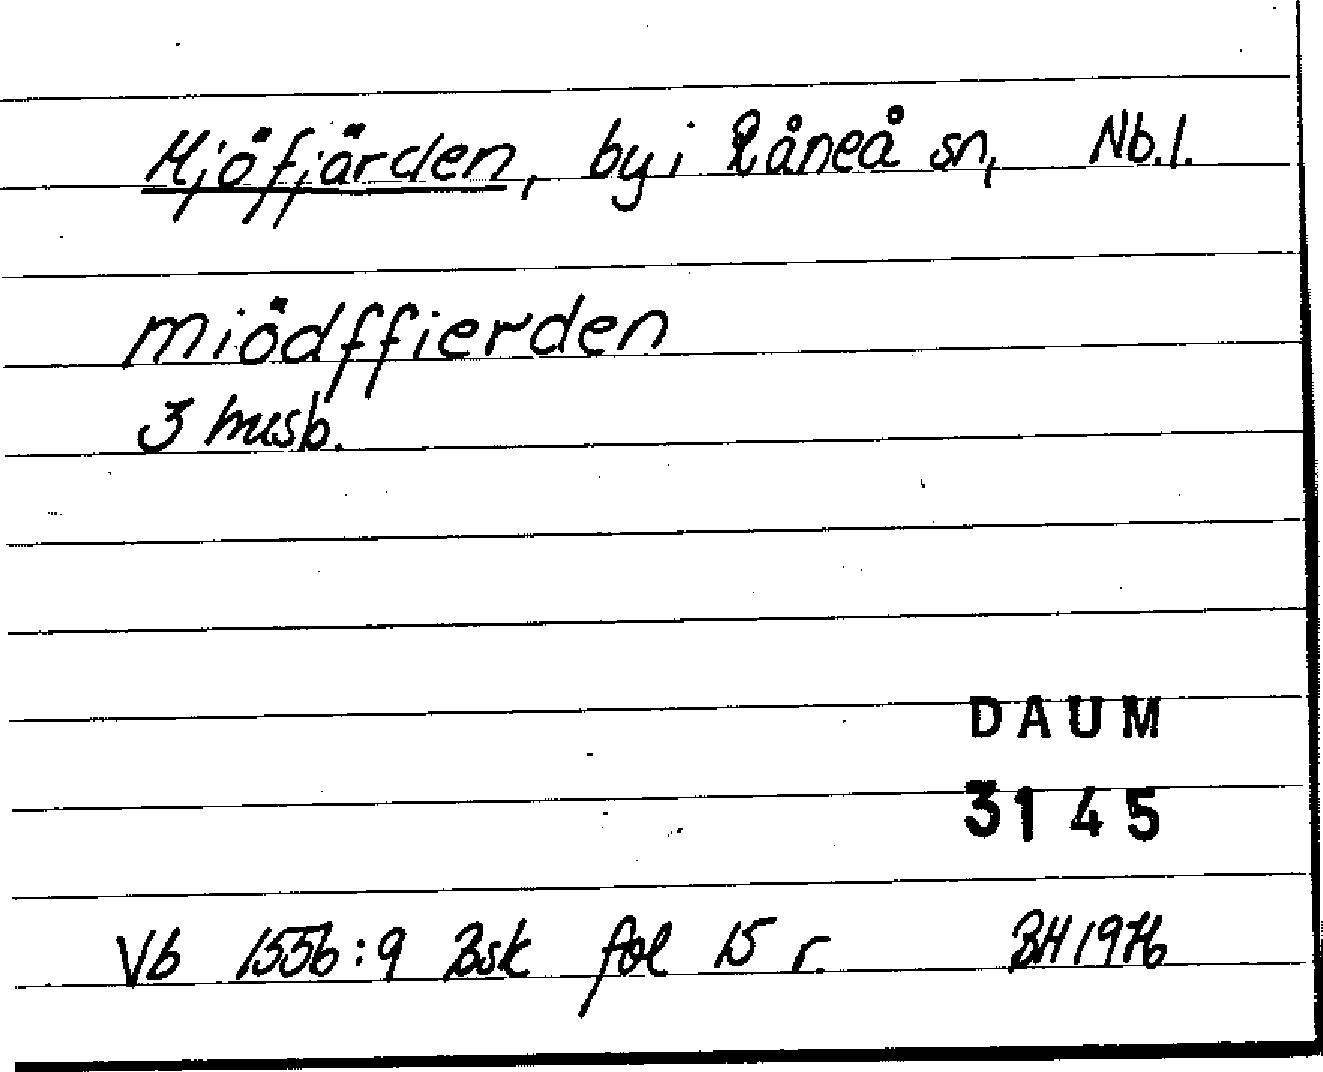 Mjöfjärden, by i Råneå sn, Nb.l.
miödffierden
3 husb.
DAUM
3145
Vb 1556:9 Bsk fol 15 r. BH 1976